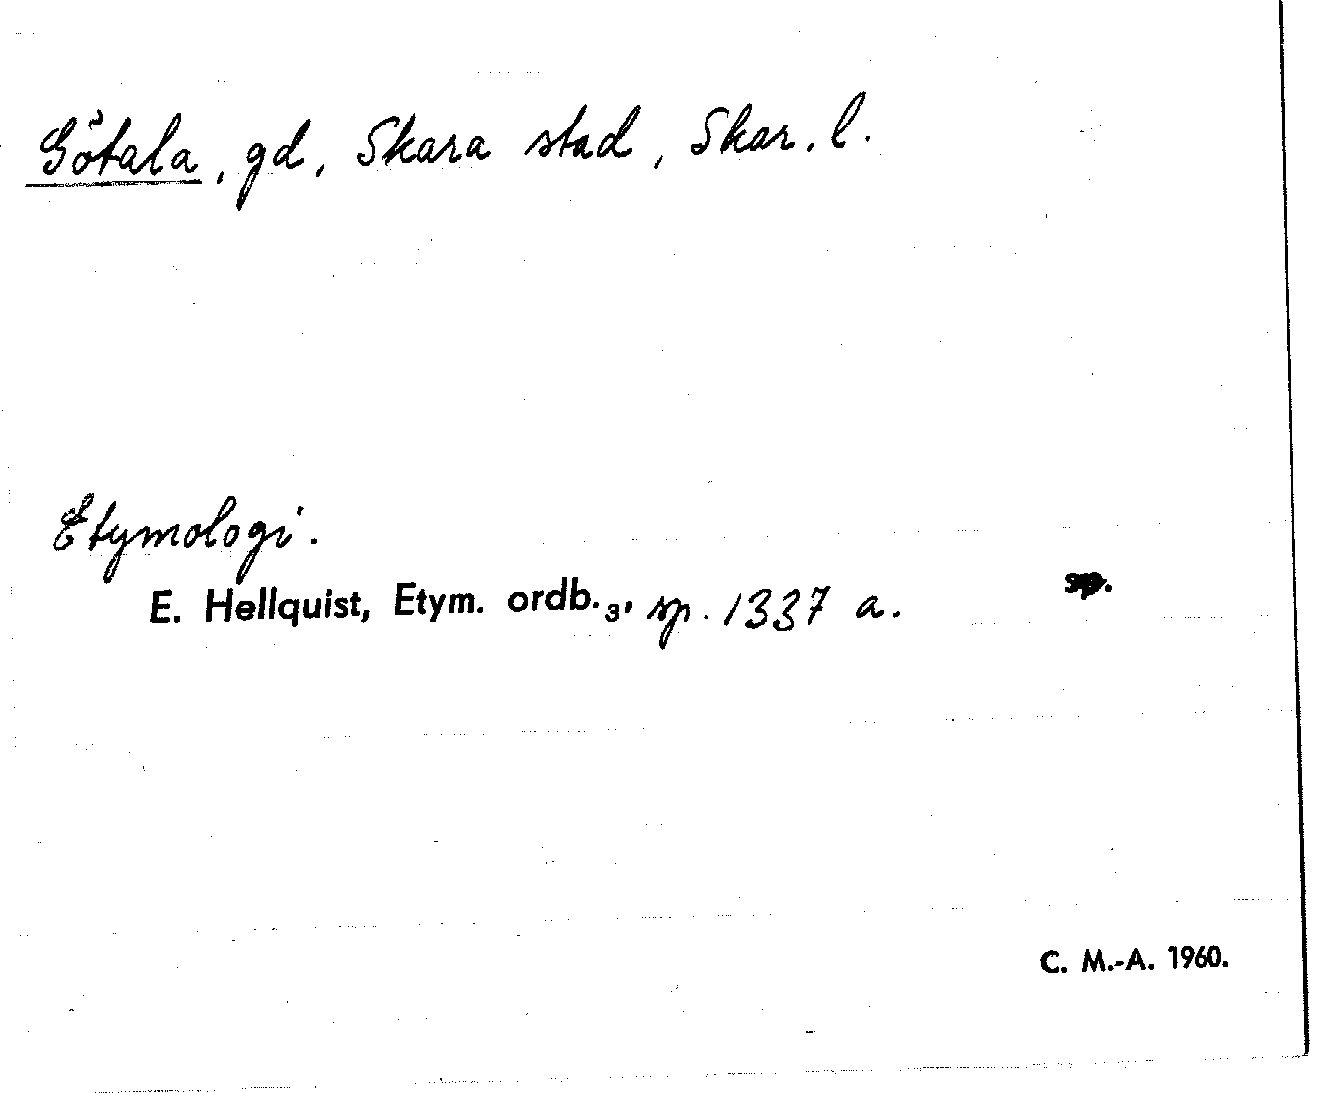 Götala, gd, Skara stad, Skar. l.
Etymologi.
E. Hellquist, Etym. ordb.₃, sp. 1337 a.
sp.
C. M.-A. 1960.